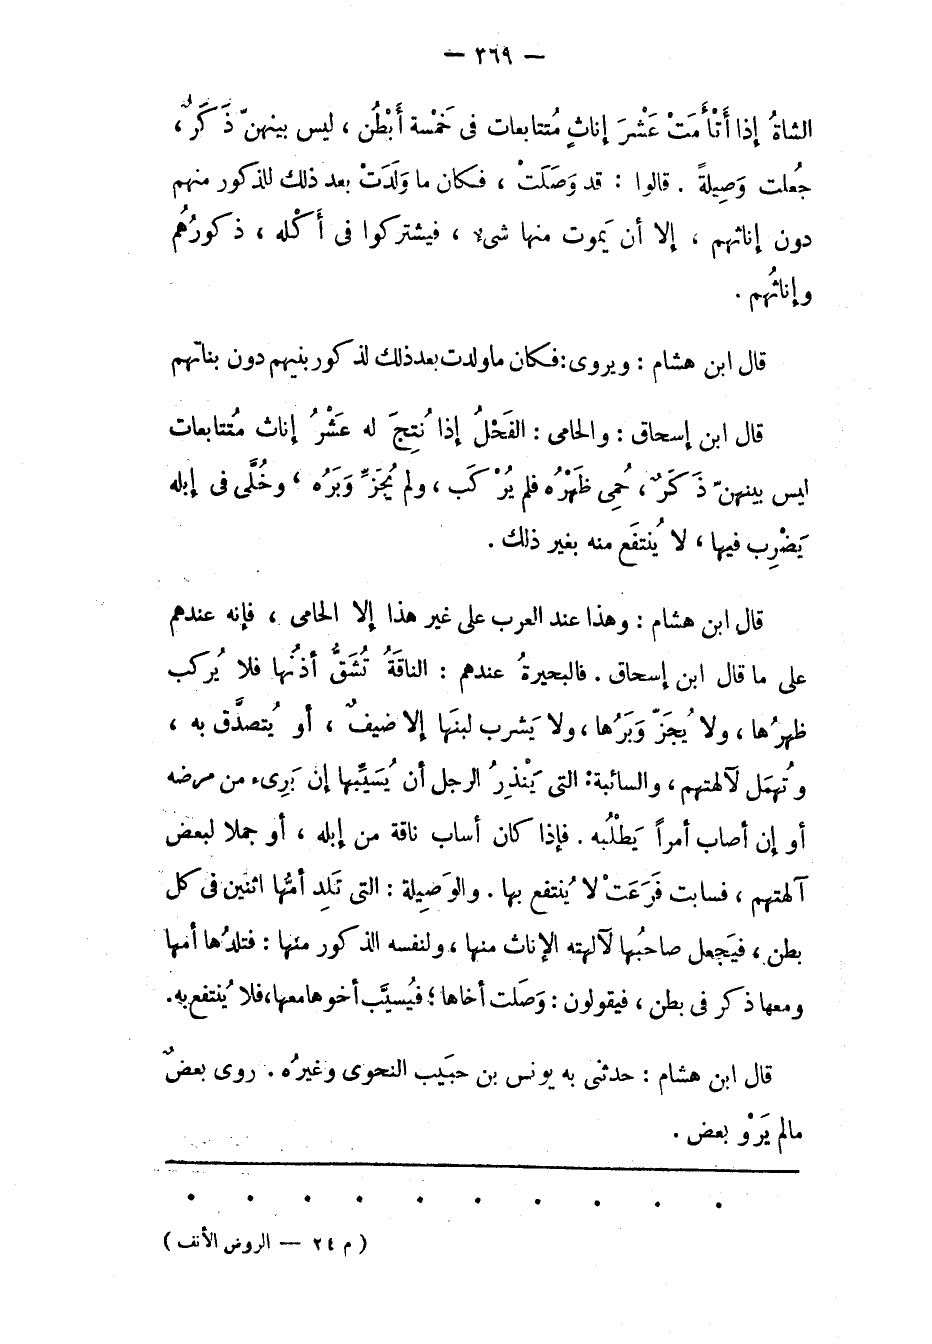 — ٣٦٩ —
الشاةُ إذا أَتْأَمَتْ عَشْرَ إناثٍ مُتتابعات فى خَمْسة أَبْطُن ، ليس بينهنّ ذَكَرٌ ،
جُعلت وَصِيلةً . قالوا : قد وَصَلَتْ ، فكان ما وَلَدَتْ بعد ذلك للذكور منهم
دون إناثهم ، إلا أن يَموت منها شىء ، فيشتركوا فى أَكْله ، ذكورُهُم
وإناثُهم .
قال ابن هشام : ويروى : فكان ماولدت بعد ذلك لذكور بنيهم دون بناتهم
قال ابن إسحاق : والحامى : الفَحْلُ إذا نُتِجَ له عَشْرُ إناث مُتتابعات
ليس بينهنّ ذَكَرٌ ، حُمِى ظَهْرُه فلم يُرْكَب ، ولم يُجَزَّ وَبَرُه ، وخُلِّى فى إبله
يَضْرِب فيها ، لا يُنتفَع منه بغير ذلك .
قال ابن هشام : وهذا عند العرب على غير هذا إلا الحامى ، فإنه عندهم
على ما قال ابن إسحاق . فالبحيرةُ عندهم : الناقَةُ تُشَقُّ أذنُها فلا يُركب
ظهرُها ، ولا يُجَزّ وَبَرُها ، ولا يَشرب لبنَها إلا ضيفٌ ، أو يُتصدَّق به ،
وتُهمَل لآلهتهم ، والسائبة : التى يَنْذِرُ الرجل أن يُسَيِّبها إن بَرِىء من مرضه
أو إن أصاب أمراً يَطلُبه . فإذا كان أساب ناقة من إبله ، أو جملا لبعض
آلهتهم ، فسابت فَرَعَتْ لا يُنتفع بها . والوَصِيلة : التى تَلِد أمُّها اثنين فى كل
بطن ، فيَجعل صاحبُها لآلهته الإناث منها ، ولنفسه الذكور منها : فتلدُها أمها
ومعها ذكر فى بطن ، فيقولون : وَصَلت أخاها ؛ فيُسيَّب أخوها معها ، فلا يُنتفع به .
قال ابن هشام : حدثنى به يونس بن حبَيب النحوى وغيرُه . روى بعضٌ
مالم يَرْوِ بعض .
( م ٢٤ — الروض الأنف )